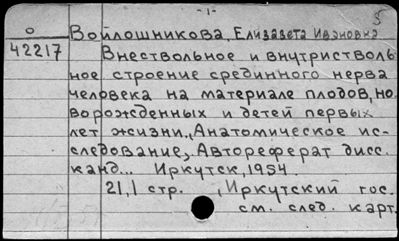 -1-
5
О
Войлошникова, Елизавета Ивановна
42217
Внествольное и внутристволь-
ное строение срединного нерва
человека на материале плодов, но
ворожденных и детей первых
лет жизни. „Анатомическое ис-
следование„. Автореферат дисс.
канд... Иркутск, 1954.
21,1 стр. , Иркутский гос.
см. след. карт.